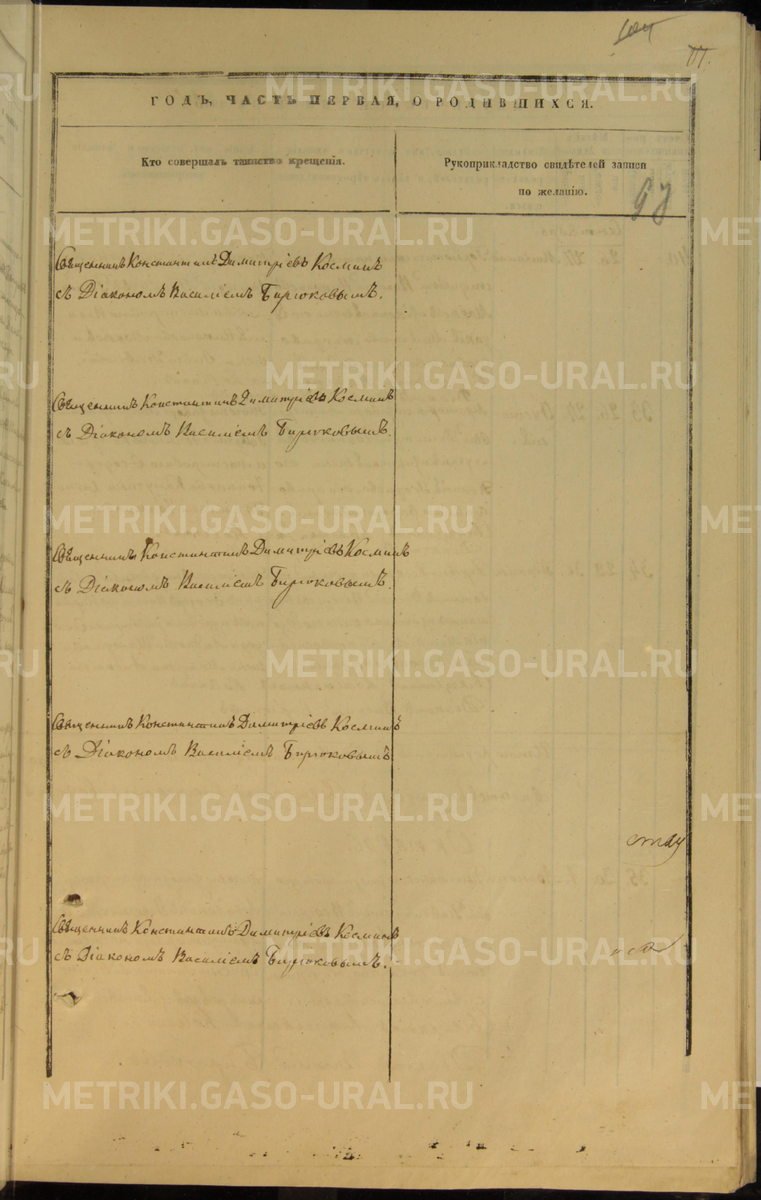 ГОДЪ, ЧАСТЬ ПЕРВАЯ, О РОДИВШИХСЯ.
Кто совершалъ таинство крещенія.
Рукоприкладство свидѣтелей записи
по желанію.
Священникъ Константинъ Димитріевъ Косминъ
съ Діакономъ Василіемъ Бирюковымъ.
Священникъ Константинъ Димитріевъ Косминъ
съ Діакономъ Василіемъ Бирюковымъ.
Священникъ Константинъ Димитріевъ Косминъ
съ Діакономъ Василіемъ Бирюковымъ.
Священникъ Константинъ Димитріевъ Косминъ
съ Діакономъ Василіемъ Бирюковымъ
Священникъ Константинъ Димитріевъ Косминъ
съ Діакономъ Василіемъ Бирюковымъ.
METRIKI.GASO-URAL.RU